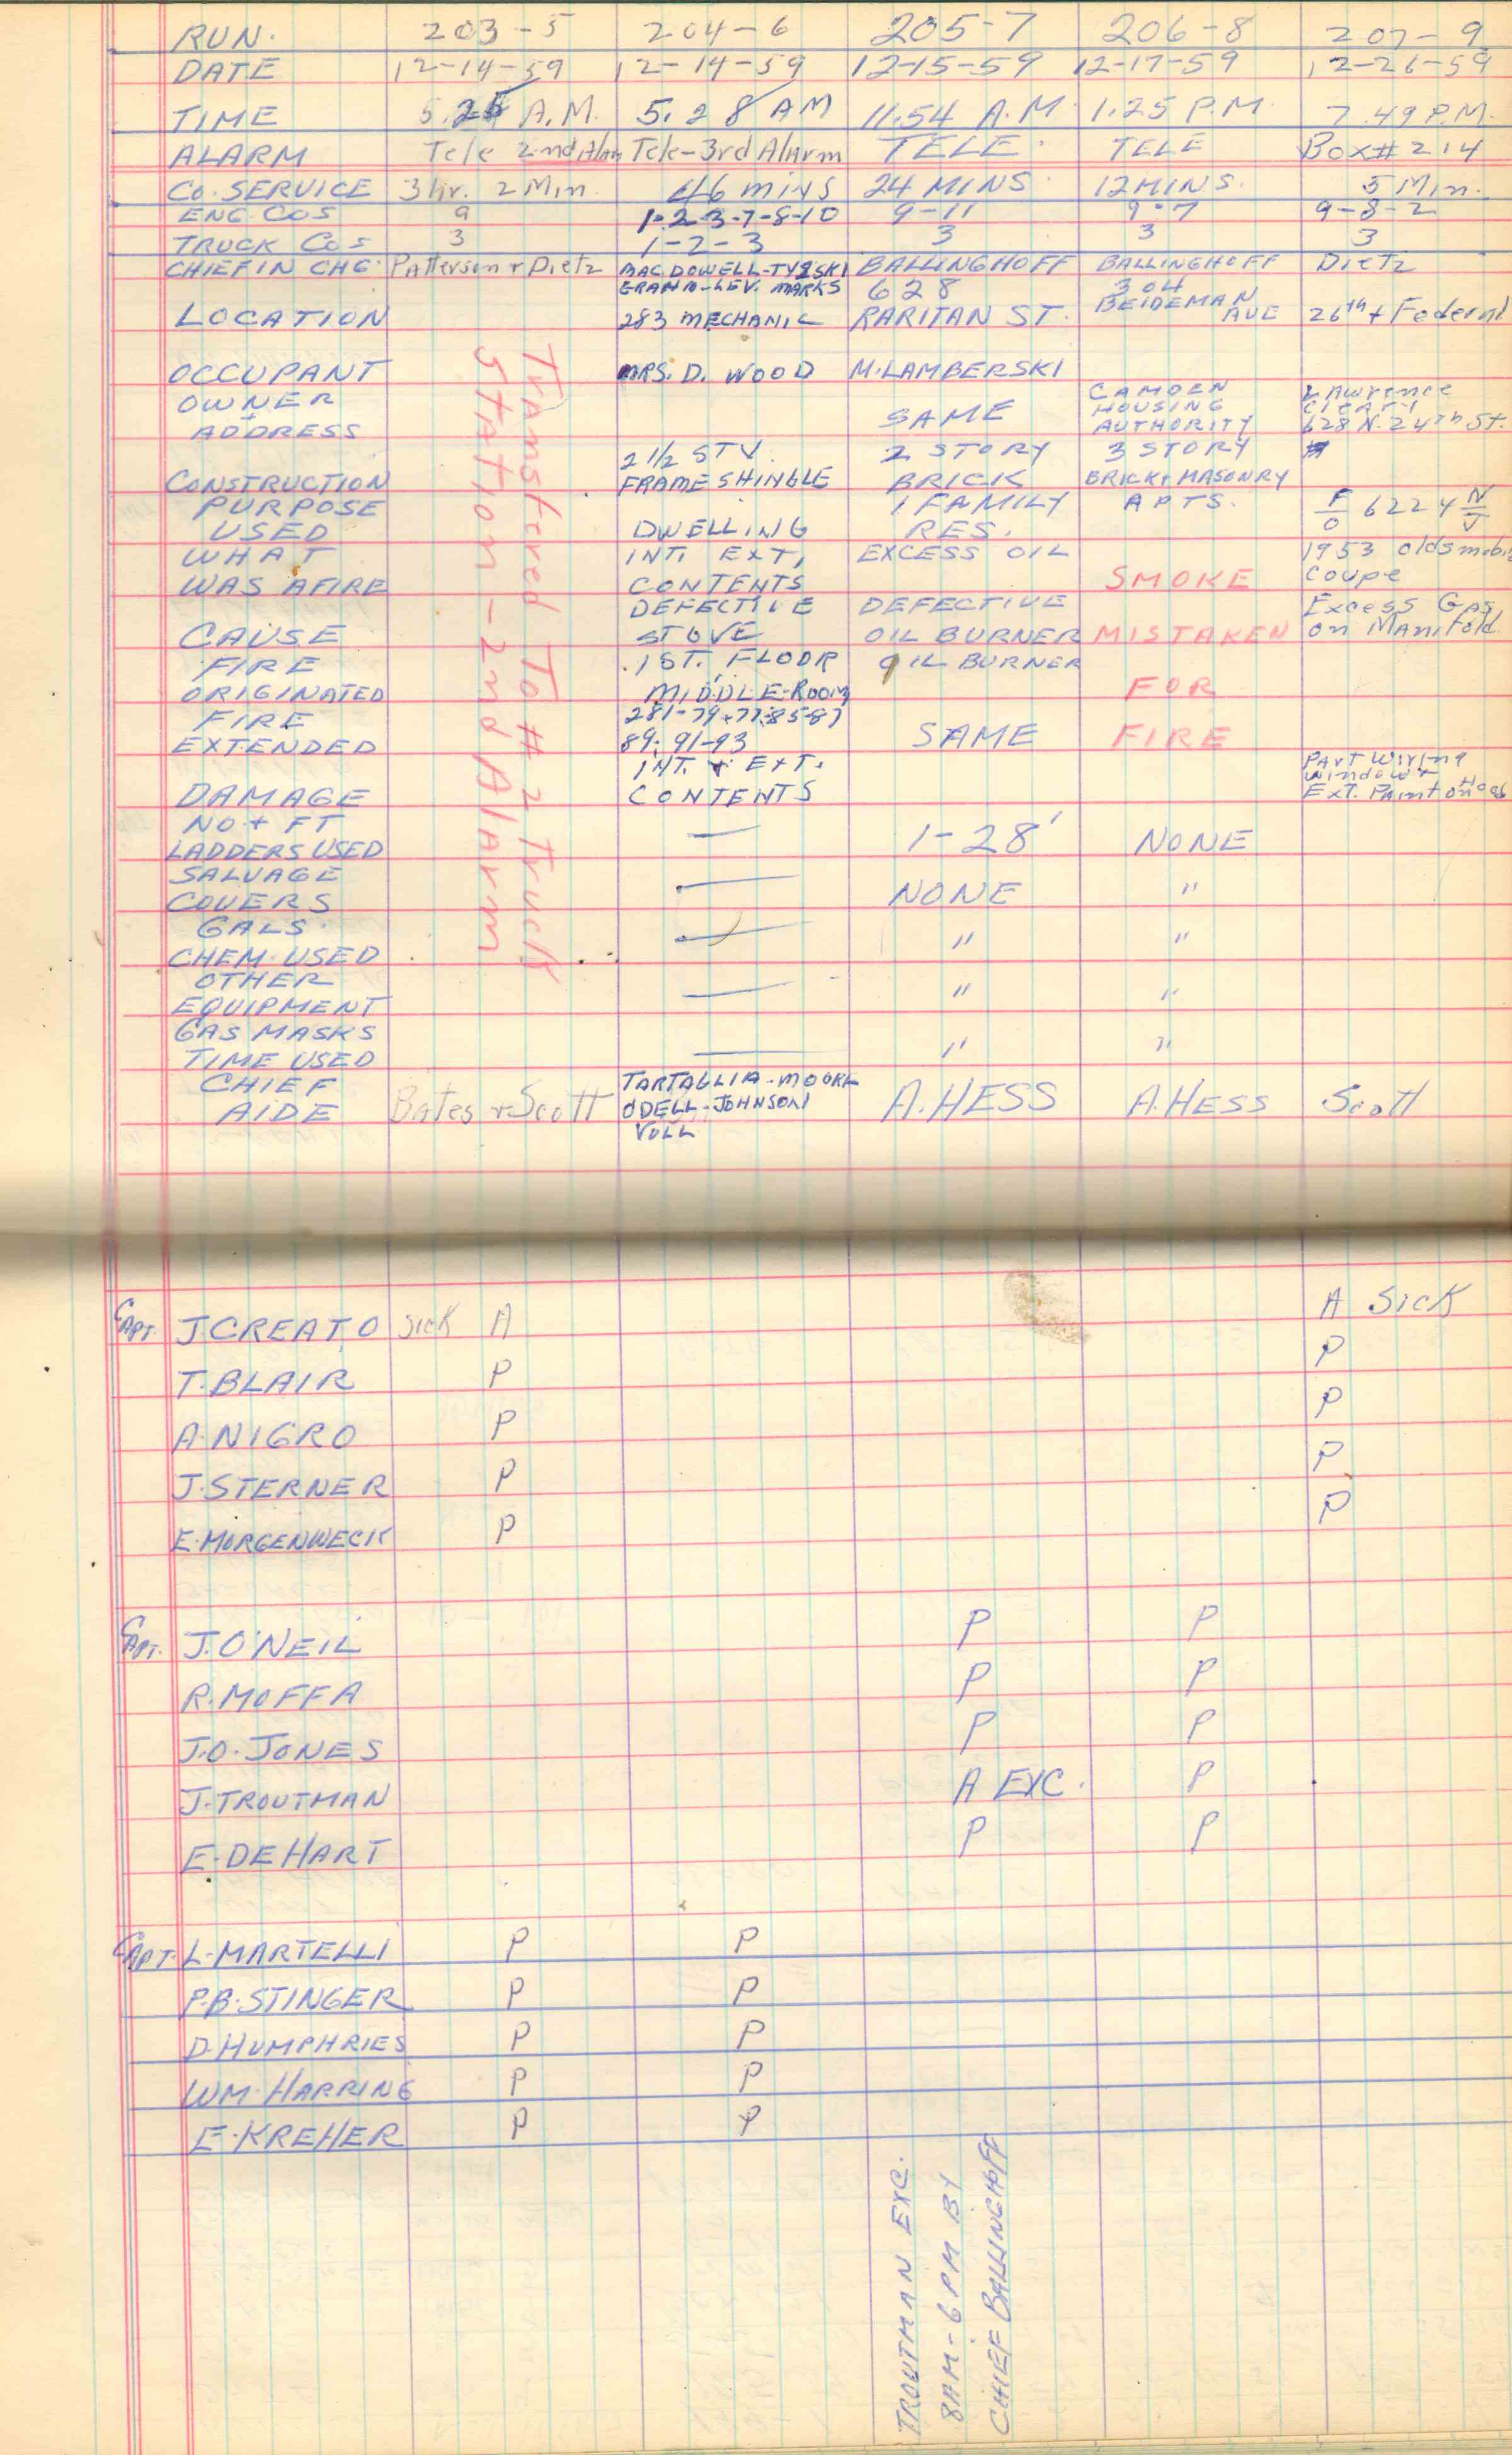 RUN. 203-5 204-6 205-7 206-8 207-9
DATE 12-14-59 12-14-59 12-15-59 12-17-59 12-26-59
TIME 5.25 A.M. 5.28 AM 11.54 A.M. 1.25 P.M. 7.49 P.M.
ALARM Tele 2nd Alam Tele-3rd Alarm TELE. TELE Box# 214
CO. SERVICE 3 hr. 2 Min. 46 mins 24 MINS. 12 MINS. 5 Min.
ENG COS 9 1-2-3-7-8-10 9-11 9-7 9-8-2
TRUCK COS 3 1-2-3 3 3 3
CHIEF IN CHG. Patterson + Dietz MACDOWELL-TYZSKI BALLINGHOFF BALLINGHOFF Dietz
GRAHM-LEV. MARKS 628 304
LOCATION 283 MECHANIC RARITAN ST. BEIDEMAN AVE 26th + Federal
Transfered To # 2 Truck
Station - 2nd Alarm
OCCUPANT MRS. D. WOOD M. LAMBERSKI
OWNER + ADDRESS SAME CAMDEN HOUSING AUTHORITY Lawrence Cleary 628 N. 24th St.
CONSTRUCTION 2 1/2 STY. FRAME SHINGLE 2 STORY BRICK 3 STORY BRICK + MASONRY
PURPOSE USED DWELLING 1 FAMILY RES. APTS. F/O 6224 N/J
WHAT WAS AFIRE INT. EXT, CONTENTS EXCESS OIL SMOKE 1953 Oldsmobile Coupe
CAUSE DEFECTIVE STOVE DEFECTIVE OIL BURNER MISTAKEN Excess Gas on Manifold
FIRE ORIGINATED 1ST. FLOOR MIDDLE-ROOM OIL BURNER FOR
FIRE EXTENDED 281-79+77-85-87 89-91-93 SAME FIRE
DAMAGE INT. + EXT. CONTENTS Part Wiring Window + Ext. Paint on Hood
NO + FT LADDERS USED — 1-28' NONE
SALVAGE COVERS — NONE "
GALS. CHEM. USED — " "
OTHER EQUIPMENT — " "
GAS MASKS TIME USED — " "
CHIEF AIDE Bates + Scott TARTAGLIA-MOORE ODELL-JOHNSON VOLL A. HESS A. HESS Scott
CAPT. J. CREATO SICK A A SICK
T. BLAIR P P
A. NIGRO P P
J. STERNER P P
E. MORGENWECK P P
CAPT. J. O'NEIL P P
R. MOFFA P P
J.O. JONES P P
J. TROUTMAN A EXC. P
E. DEHART P P
CAPT. L. MARTELLI P P
P.B. STINGER P P
D. HUMPHRIES P P
WM. HARRING P P
E. KREHER P P
TROUTMAN EXC.
8AM-6PM BY
CHIEF BALLINGHOFF